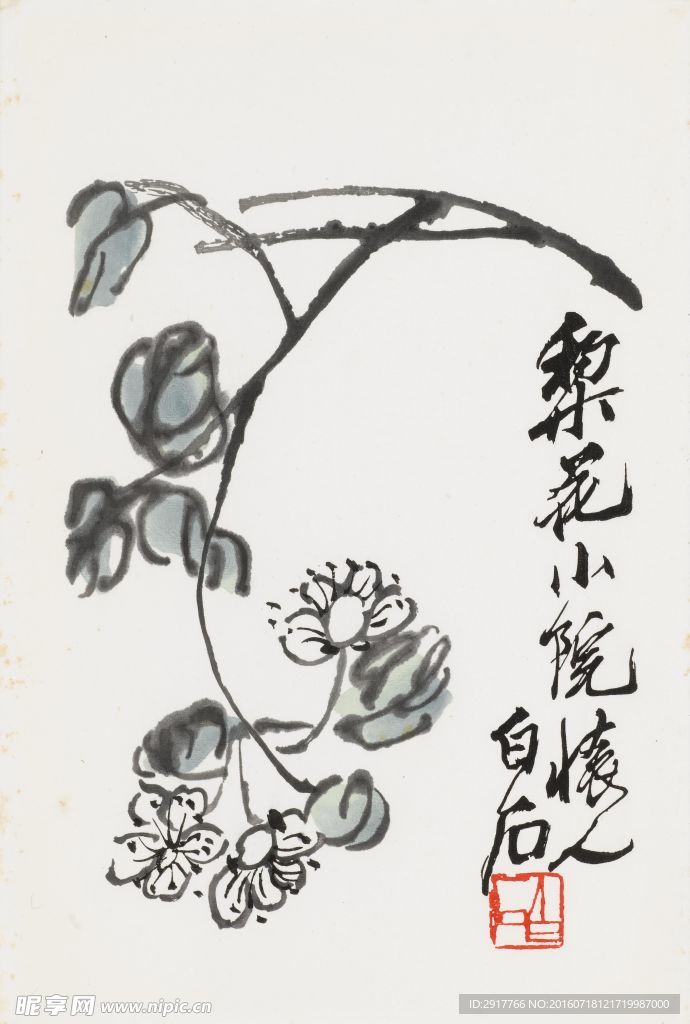 梨花小院懐人
白石
昵享网 www.nipic.cn
ID:2917766 NO:20160718121719987000